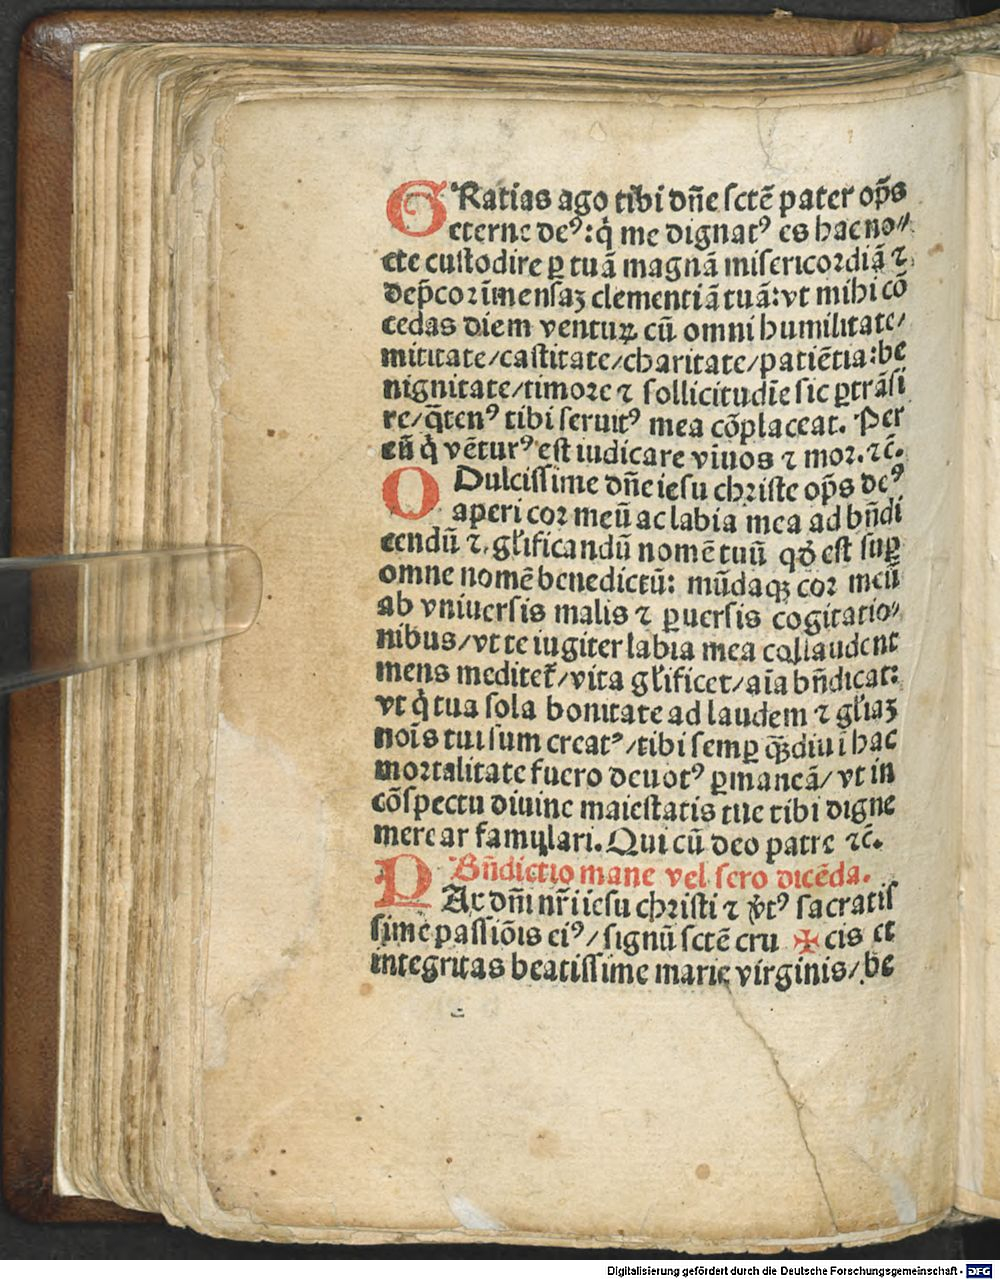 GRatias ago tibi dn̄e sctē pater op̄s
eterne deꝰ: q̇ me dignatꝰ es hac no⸗
cte custodire ꝑ tuā magnā misericoꝛdiā ⁊
dep̄coꝛ īmensaꝫ clementiā tuā: vt mihi cō
cedas diem ventuꝝ cū omni humilitate/
mititate/castitate/charitate/patiētia: be
nignitate/timoꝛe ⁊ sollicitudīe sic ꝑtrāsi
re/q̄tenꝰ tibi seruitꝰ mea cōplaceat. Per
eū q̇ vēturꝰ est iudicare viuos ⁊ moꝛ. ⁊c̄.
O Dulcissime dn̄e iesu chꝛiste op̄s deꝰ
aperi coꝛ meū ac labia mea ad bn̄di
cendū ⁊ gl̄ificandū nomē tuū qd̄ est suꝑ
omne nomē benedictū: mūdaqꝫ coꝛ meū
ab vniuersis malis ⁊ ꝑuersis cogitatio⸗
nibus/vt te iugiter labia mea collaudent
mens meditet̄/vita gl̄ificet/aīa bn̄dicat:
vt q̇ tua sola bonitate ad laudem ⁊ gl̄iaꝫ
noīs tui sum creatꝰ/tibi semꝑ qꝫ̄diu ī hac
moꝛtalitate fuero deuotꝰ ꝑmaneā/vt in
cōspectu diuine maiestatis tue tibi digne
merear famulari. Qui cū deo patre ⁊c̄.
Bn̄dictio mane vel sero dicēda.
PAx dn̄i nr̄i iesu chꝛisti ⁊ v̇tꝰ sacratis
sime passiōis eiꝰ/signū sctē cru ✠ cis et
integritas beatissime marie virginis/be
Digitalisierung gefördert durch die Deutsche Forschungsgemeinschaft - DFG